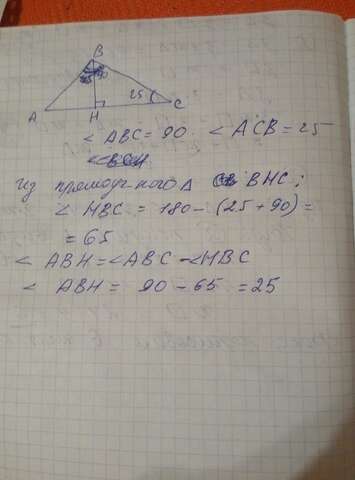 B
25
A
H
C
< ABC = 90 < ACB = 25
Из прямоуг-ного Δ BHC;
< HBC = 180 - (25 + 90) =
= 65
< ABH = <ABC - <HBC
< ABH = 90 - 65 = 25